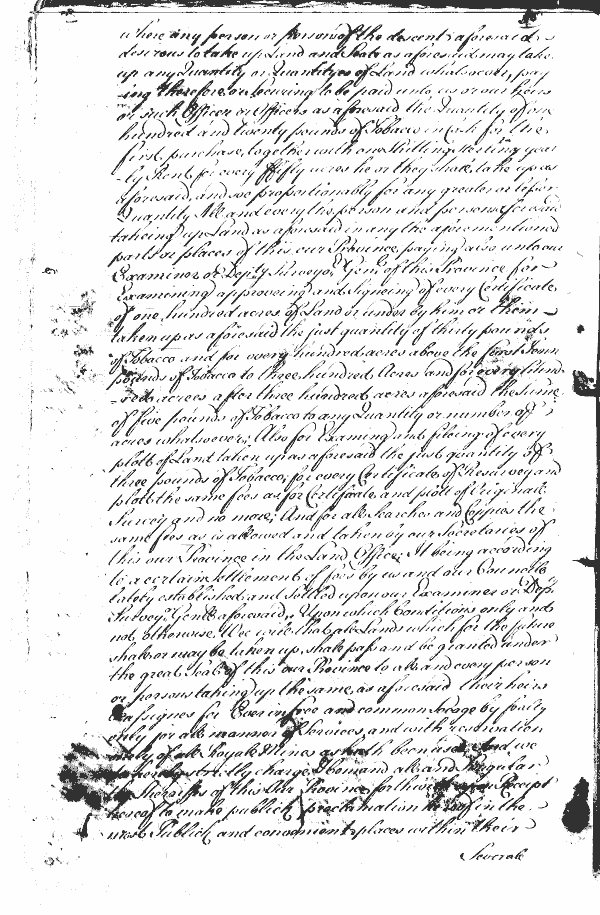 where any person or persons of the descent aforesaid
desirous to take up Land and Seate as aforesaid may take
up any Quantity or Quantityes of Land whatsoever, pay
ing therefore or secureing to be paid unto us or our heirs
or such Officer or Officers as aforesaid the Quantity of one
hundred and twenty pounds of Tobacco in Cask for the
first purchase, together with one shilling sterling year
ly Rent for every fifty acres he or they shall take up as
aforesaid, and soe proportionably for any greater or lesser
Quantity All and every the person and persons soe
takeing up Land as aforesaid in any the aforementioned
parts or places of this our Province, paying also unto our
Examiner or Deputy Surveyor Genll of this Province for
Examining approveing and Signing of every Certificate
of one hundred acres of Land or under by him or them
taken up as aforesaid the just quantity of thirty pounds
of Tobacco and for every hundred acres above the first Tenn
pounds of Tobacco to three hundred Acres and for every hund
red acres after three hundred acres aforesaid the sume
of five pounds of Tobacco to any Quantity or number of
acres whatsoever; Also for Examing and fileing of every
plott of Land taken up as aforesaid the just quantity of
three pounds of Tobacco, for every Certificate of Resurvey and
plott the same fees as for Certificate and plott of Originall
Survey and no more; And for all Searches and Coppies the
same fees as is allowed and taken by our Secretaries of
this our Province in the Land Office; It being according
to a certain settlement of fees by us and our Councill
lately established and settled upon our Examiner or Dep.
Survey.r Genll aforesaid, Upon which Conditions only and
not otherwise We will that all Lands which for the future
shall or may be taken up shall pass and be granted under
the great Seal of this our Province to all and every person
or persons taking up the same as aforesaid their heirs
& assignes for Ever in free and common Socage by fealty
only for all manner of Services, and with reservation
only of all Royall Mines as hath been used, And we
hereby strictly charge & Comand all and Singular
the Sheriffs of this Our Province forthwith upon Receipt
hereof to make publick proclamation hereof in the
most Publick and convenient places within their
Severall